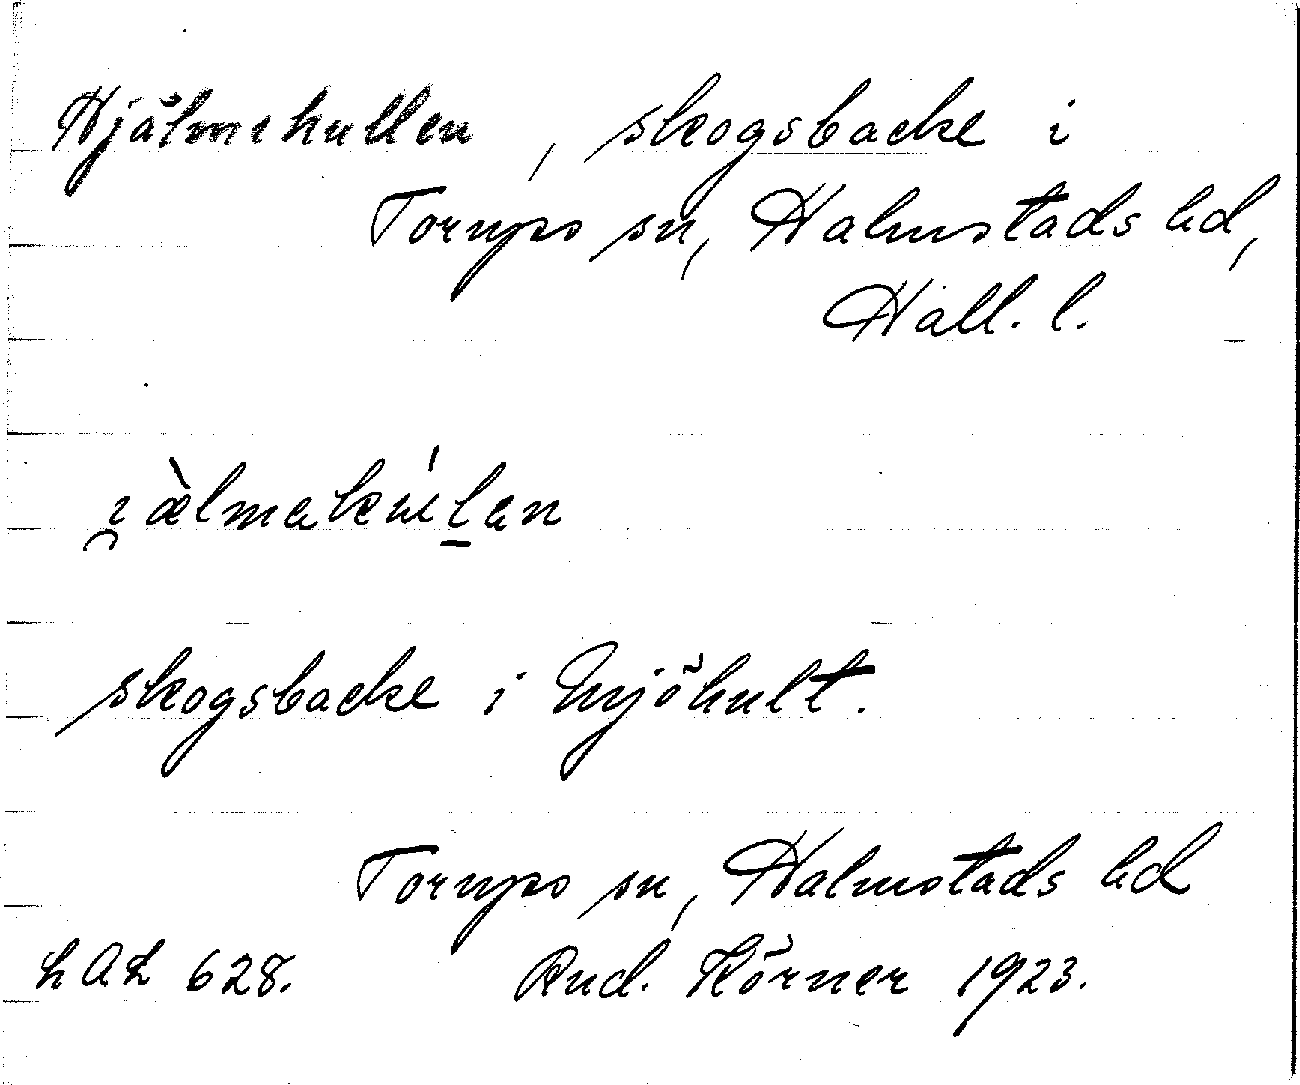 Hjälmekullen, skogsbacke i
Torups sn, Halmstads hd,
Hall. l.
skogsbacke i Mjöhult.
Torups sn, Halmstads hd
LAL 628. Rud. Körner 1923.